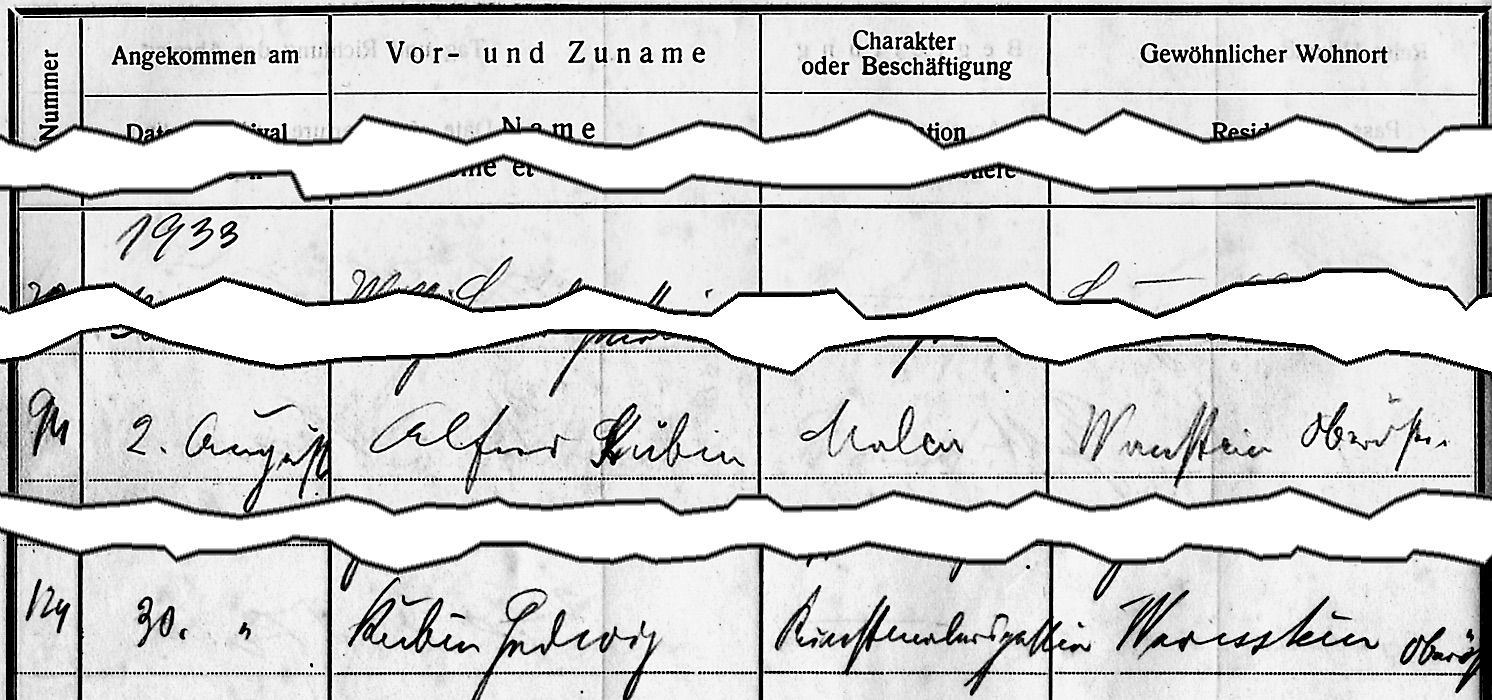 Nummer
Angekommen am
Vor- und Zuname
Charakter
oder Beschäftigung
Gewöhnlicher Wohnort
Name
1933
2. August Alfred Kubin Maler Wernstein Oberöst.
129 30. " Kubin Hedwig Kunstmalersgattin Wernstein Oberöst